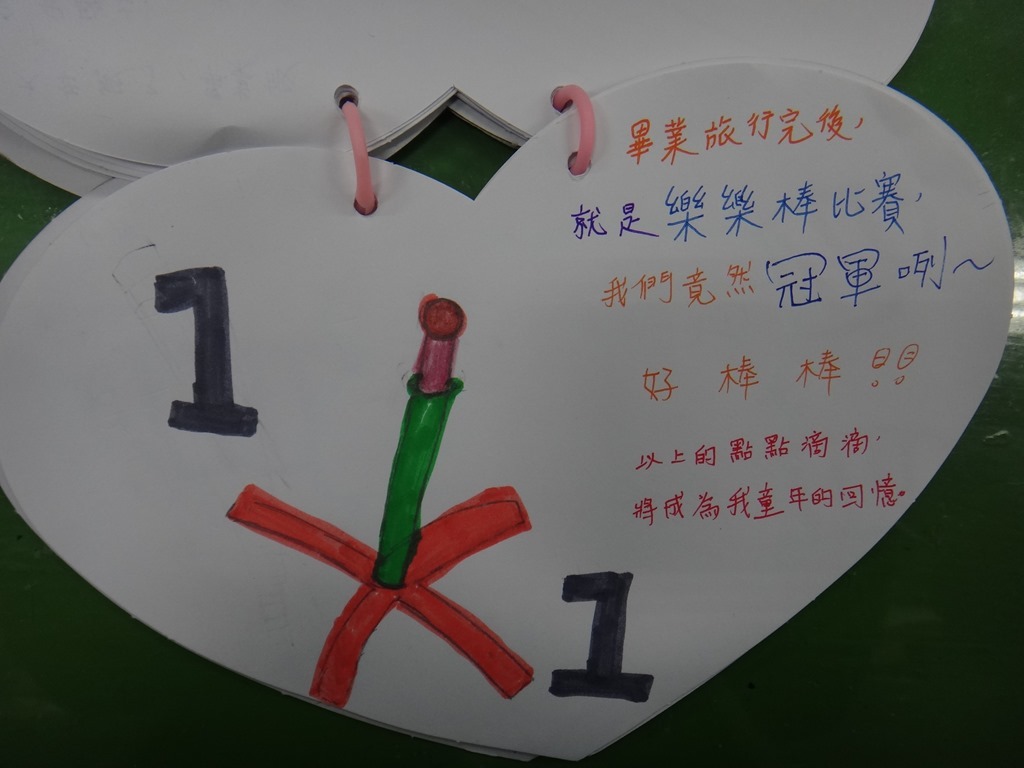 畢業旅行完後，
就是樂樂棒比賽，
我們竟然冠軍咧～
好 棒 棒!!
以上的點點滴滴，
將成為我童年的回憶。
1
1